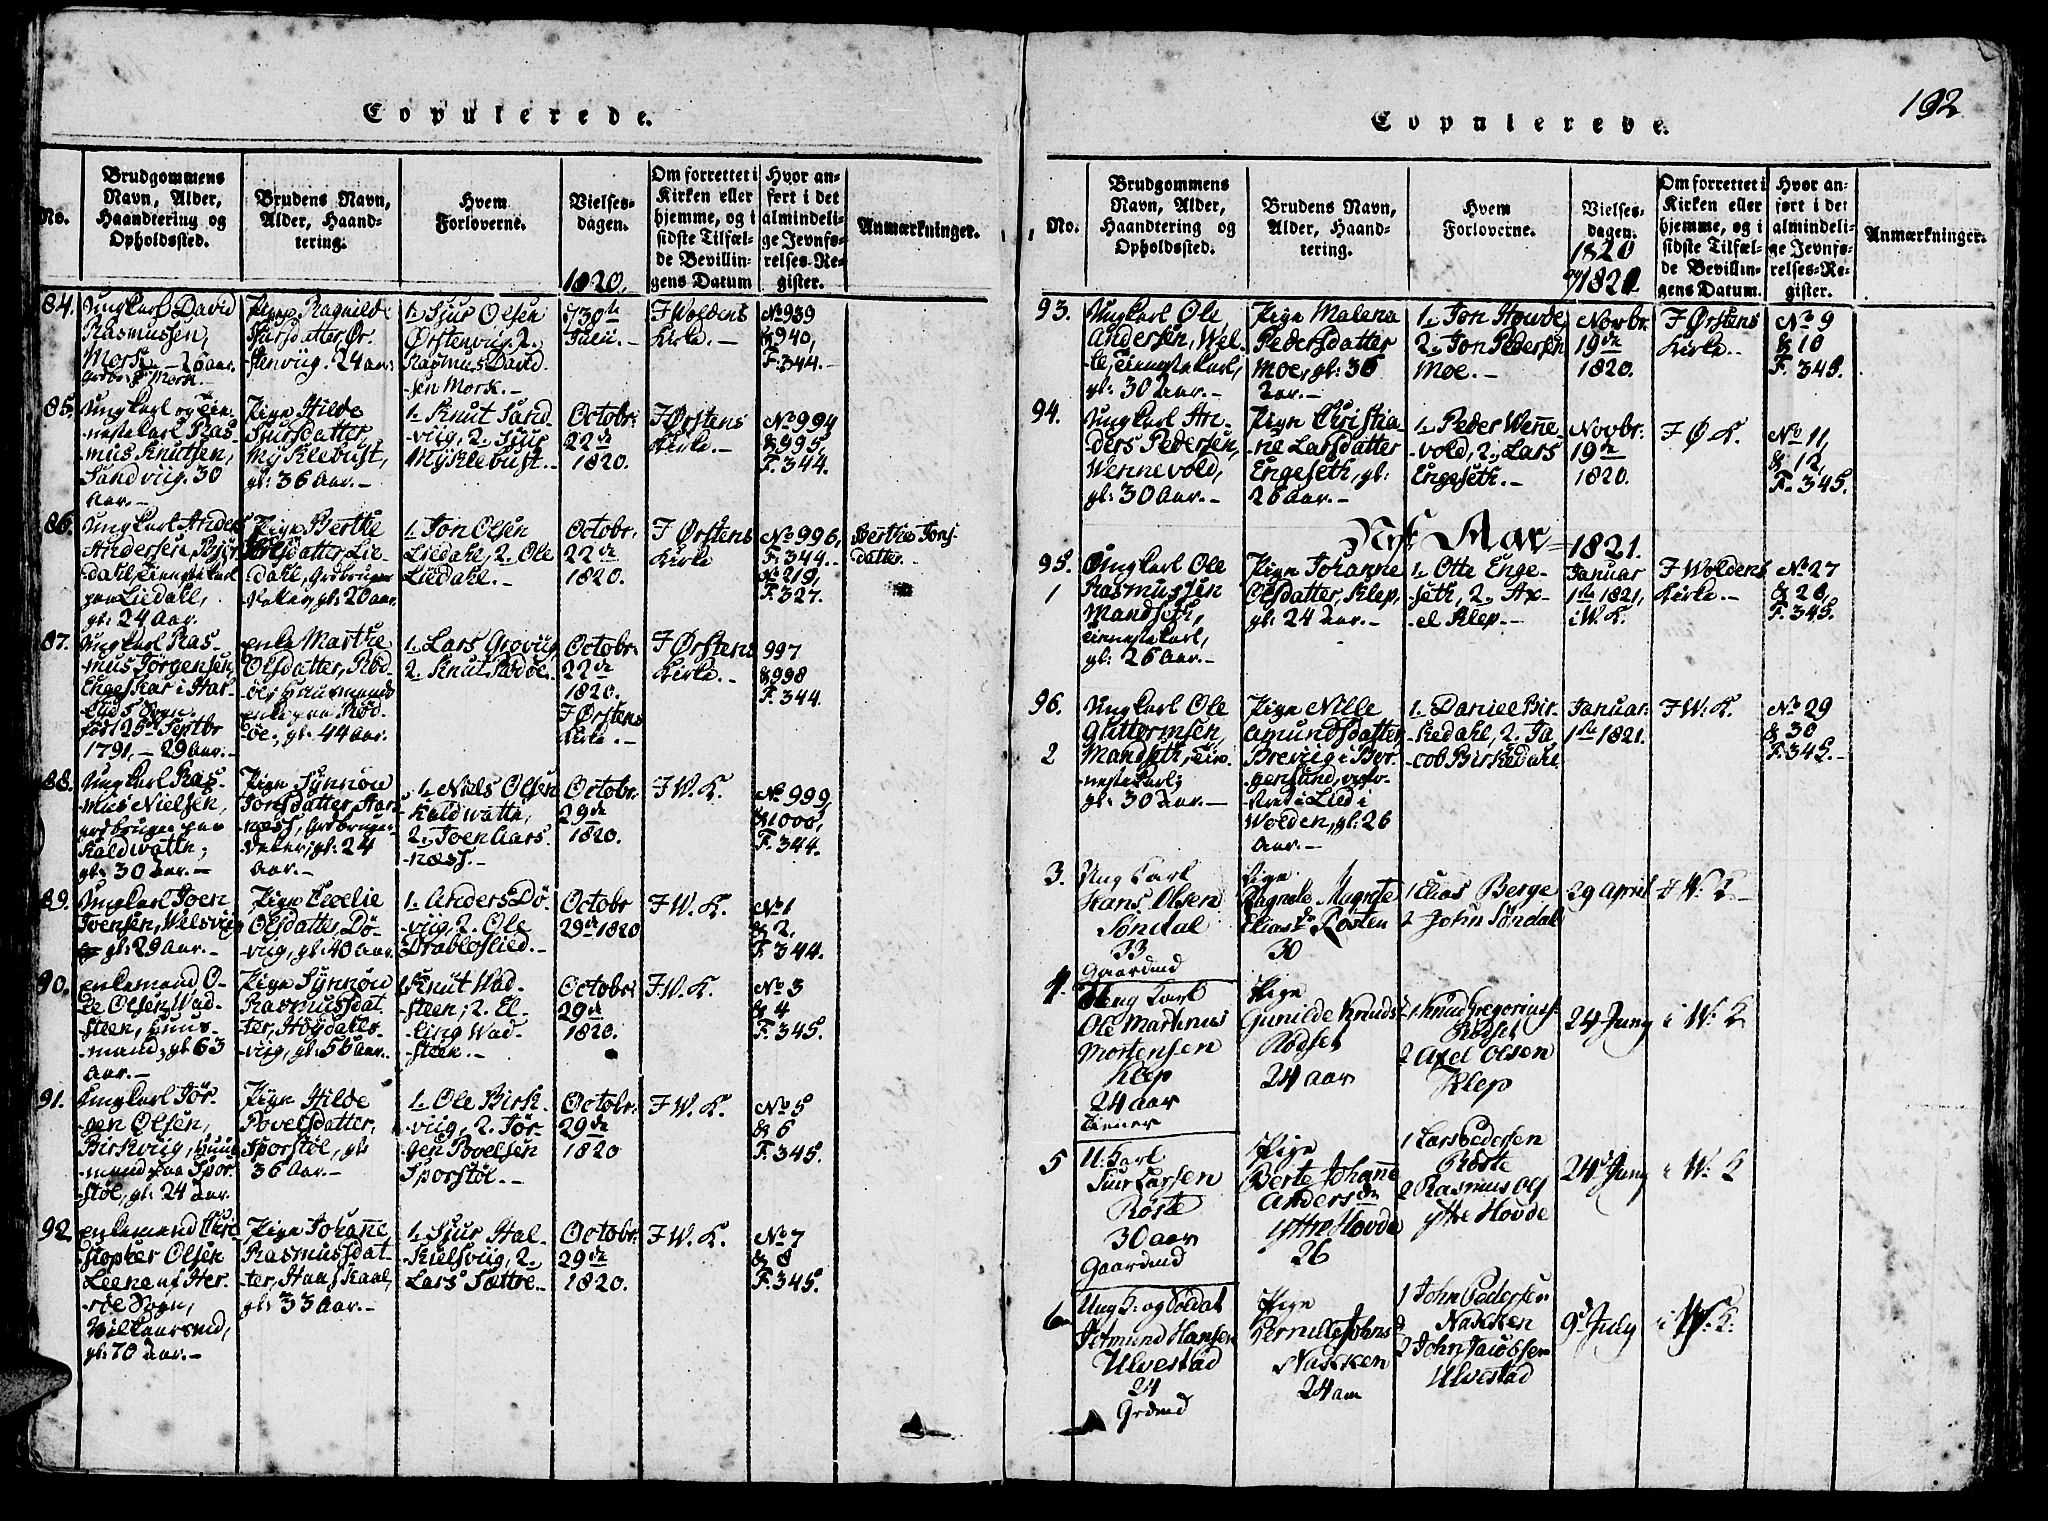 Copulerede.
No.
Brudgommens
Navn, Alder,
Haandtering og
Opholdssted.
Brudens Navn,
Alder, Haand-
tering.
Hvem
Forloverne.
Vielses-
dagen.
1820.
Om forrettet i
Kirken eller
hjemme, og i
sidste Tilfæl-
de Bevillin-
gens Datum
Hvor an-
ført i det
almindeli-
ge Jevnfø-
relses-Re-
gister.
Anmærkninger.
84.
Ungkarl David
Rasmussen,
Mork — 26 aar.
Pige Ragnilde
datter Ør-
stenviig. 24 aar
1. Sjur Olsen
Ørstenviig. 2.
Rasmus David
sen Mork.
30te
I Woldens
Kirke.
No 939
& 940,
F. 344.
85.
Ungkarl og Tie-
nestekarl Ras-
mus Knutsen,
Sandviig. 30
Aar.
Pige Hilde
Sjursdatter,
Myklebust,
gl: 36 Aar.
1. Knut Sand-
viig, 2. Sjur
Myklebust.
Octobr:
22de
1820.
I Ørstens
Kirke.
No 994
& 995,
F. 344.
86.
Ungkarl Anders
Andersen, Bjør
dahl, Tienestekarl
paa Liedahl,
gl: 24 Aar.
Pige Berthe
datter, Lie-
dahl,
gl: 20 aar.
1. Jon Olsen
Liedahl, 2. Ole
Liedahl.
Octobr.
22de
1820.
I Ørstens
Kirke
No 996,
F. 344.
No 219,
F. 327.
Berthe Jons
datter.
87.
Ungkarl Ras-
mus Jørgensen,
Engeskar i Har-
eids Sogn,
fød 25de Septbr
1791, — 29 aar.
enke Marthe
Olsdatter, Rød-
øe, Huusmands
enke paa Rød-
øe, gl: 44 aar.
1. Lars Grøviig,
2. Knut Rødøe.
Octobr:
22de
1820.
I Ørstens
Kirke.
I Ørstens
Kirke.
997
& 998
F. 344.
88.
Ungkarl Ras-
mus Nielsen,
gardbruger paa
Kaldvatn,
gl: 30 Aar.
Pige Synnøve
Jonsdatter, Aar-
næss,
gl: 24
Aar.
1. Niels Olsen
Kaldvatn,
2. Joen Aars-
næss.
Octobr.
29de
1820.
I W. K.
No 999,
& 1000,
F. 344.
89.
Ungkarl Joen
Joensen, Welsviig
gl: 29 Aar.
Pige Cecelie
Olsdatter, Dø-
viig, gl: 40 aar
1. Anders Dø-
viig, 2. Ole
Drabløslied.
Octobr
29de 1820
I W. K.
No 1
& 2.
F. 344.
90.
enkemand O-
le Olsen, Wad-
steen, Huus-
mand, gl 63
Aar.
Pige Synnøve
Rasmusdat-
ter, Høydals-
viig, gl: 56 aar.
1. Knut Wad-
steen, 2. El-
ling Wad-
steen.
Octobr:
29de
1820.
I W. K.
No 3
& 4
F. 345.
91.
Ungkarl Jør-
gen Olsen,
Birkviig, Huus-
mand paa Spor-
støl, gl: 24 aar.
Pige Hilde
Povelsdatter,
Sporstøl, gl:
36 Aar.
1. Ole Birk-
viig, 2. Jør-
gen Povelsen
Sporstøl.
Octobr:
29de
1820
I W. K.
No 5
& 6
F. 345.
92.
enkemand Chri
stopher Olsen
Leene af Her-
røe Sogn,
Vilkaarsmd,
gl: 70 aar.
Pige Johanne
Rasmusdat-
ter, Haaskaal,
gl: 33 Aar.
1. Sjur Hal-
kielsviig, 2.
Lars Sætre.
Octobr.
29de
1820.
I W. K.
No 7
& 8
F. 345.
192
Copulerede.
No.
Brudgommens
Navn, Alder,
Haandtering og
Opholdssted.
Brudens Navn,
Alder, Haand-
tering.
Hvem
Forloverne.
Vielses-
dagen.
1820
og 1821
Om forrettet i
Kirken eller
hjemme, og i
sidste Tilfæl-
de Bevillin-
gens Datum.
Hvor an-
ført i det
almindeli-
ge Jevnfø-
relses-Re-
gister.
Anmærkninger.
93.
Ungkarl Ole
Andersen, Wel-
le, Tienestekarl,
gl: 30 Aar.
Pige Malena
Pedersdatter
Moe, gl: 36
Aar.
1. Jon Houde,
2. Jon Pedersen
Moe.
Novbr.
19de
1820.
I Ørstens
Kirke.
No 9
& 10
F. 345.
94.
Ungkarl An-
ders Pedersen,
Wennevold,
gl: 30 Aar.
Pige Christia-
ne Larsdatter
Engeseth, gl:
26 Aar.
1. Peder Wenne
vold, 2. Lars
Engeseth.
Novbr.
19de
1820.
I Ø K.
No 11,
& 12,
F. 345.
Aar 1821.
95.
1
Ungkarl Ole
Rasmussen
Mandseth,
Tienestekarl,
gl: 26 Aar.
Pige Johanne
Olsdatter, Klep,
gl: 24 Aar.
1. Otte Enge-
seth, 2. Ax-
el Klep.
Januar
1ste 1821,
i W. K.
I Woldens
Kirke.
No 27
& 28,
F. 345.
96.
2
Ungkarl Ole
Guttormsen,
Mandseth, Tie-
nestekarl,
gl: 30 Aar.
Pige Nille
Amundsdatter
Breviig i Bor-
gensund,
Lied i
Wolden, gl: 26
Aar.
1. Daniel Bir-
kedahl, 2. Ja
cob Birkedahl.
Januar:
1ste 1821.
I W. K.
No 29
& 30
F. 345.
3.
Ung karl
Hans Olsen
Søndal
33
Gaardmd
Pige
Ragnele Magrete
Eliasdr Rosten
30
1 Elias Berge
2 John Søndal
29 April
I W. K
4.
Ung karl
Ole Martinus
Mortensen
Klep
24 aar
Tiener
Pige
Gunilde Knuds
Rødset
24 aar
1 Knud Gregoriuss
Rødset
2 Axel Olsen
Klep
24 Juny
i W. K
5
U. karl
Siur Larsen
Røste
30 aar
Gaardmd
Pige
Berte Johanne
Andersdr
Yttre Hovde
26
1 Lars Pedersen
Røste
2 Rasmus
Ytre Hovde
24 Juny
i W: K
6
Ung K. og Soldat
Hansen
Ulvestad
24
Grdmd
Pige
Pernille Johns
Nakken
24 aar
1 John Pedersen
Nakken
2 John Jacobsen
Ulvestad
9 July
i W. K.